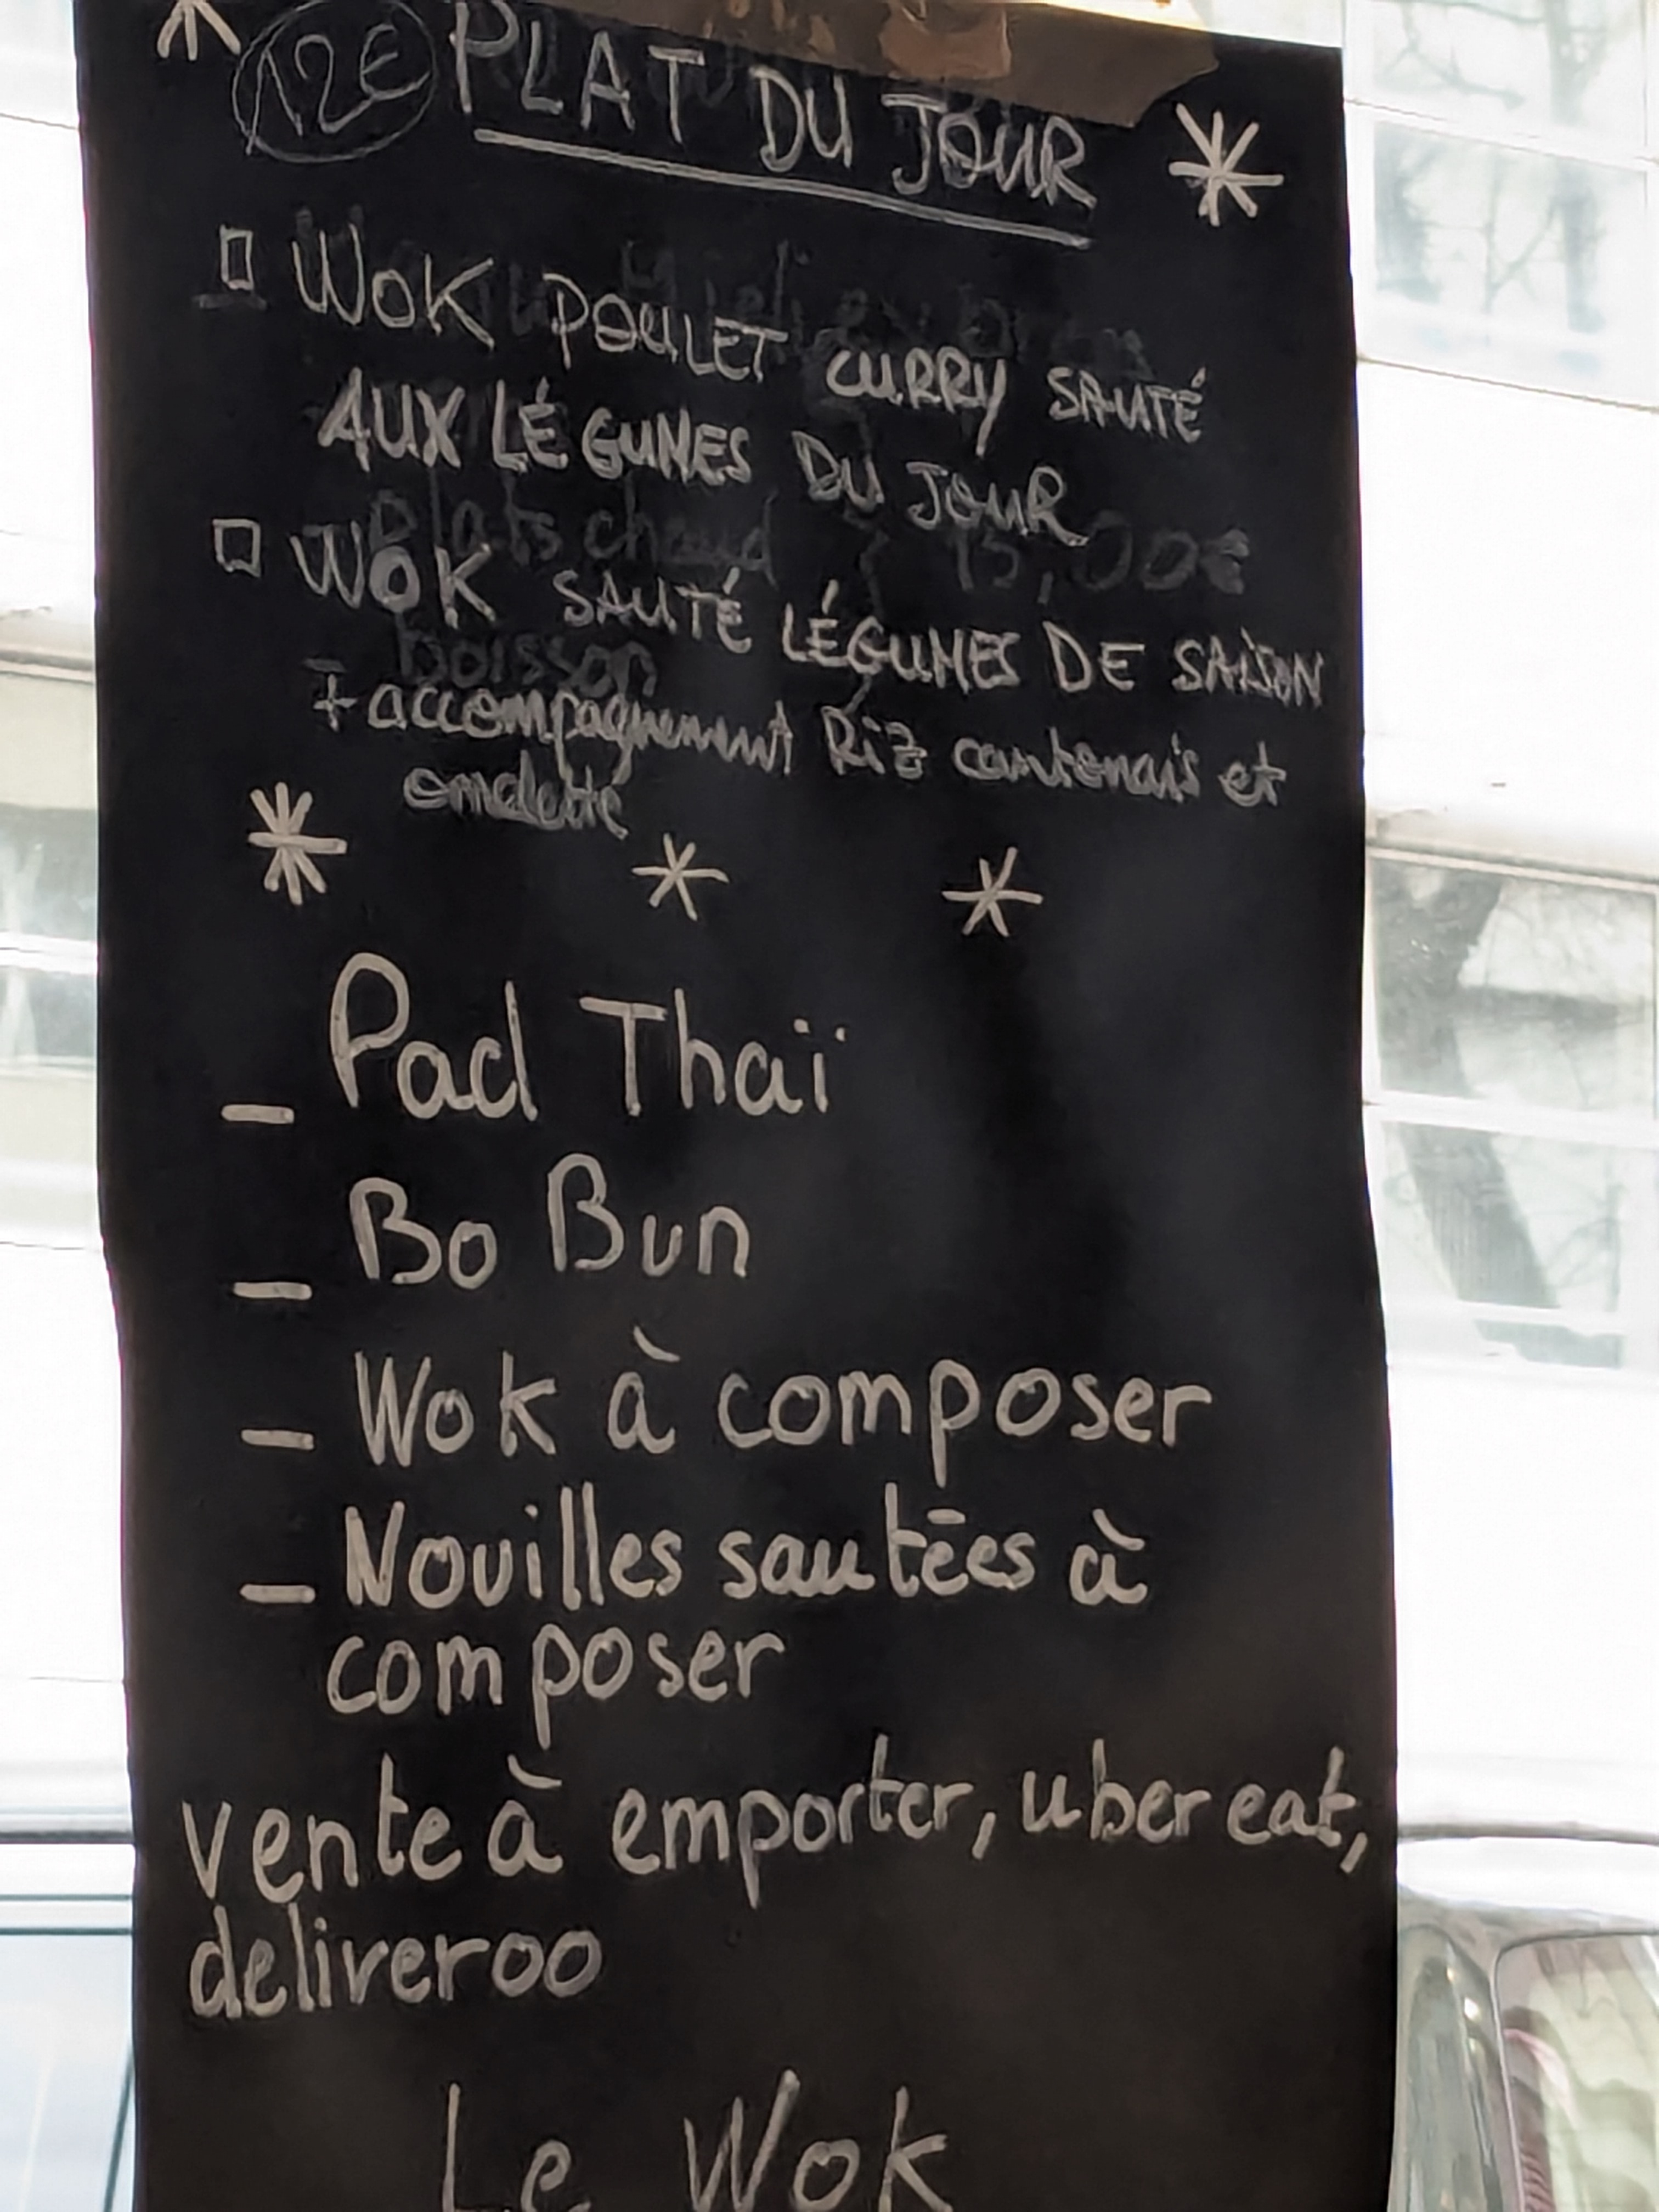 12€ PLAT DU JOUR
WOK POULET CURRY SAUTÉ
AUX LÉGUMES DU JOUR
Plats chaud 15,00€
WOK SAUTÉ LÉGUMES DE SAISON
boisson
+ accompagnement Riz cantonais et
omelette
* * *
_ Pad Thaï
_ Bo Bun
_ Wok à composer
_ Nouilles sautées à
composer
vente à emporter, uber eat,
deliveroo
Le Wok